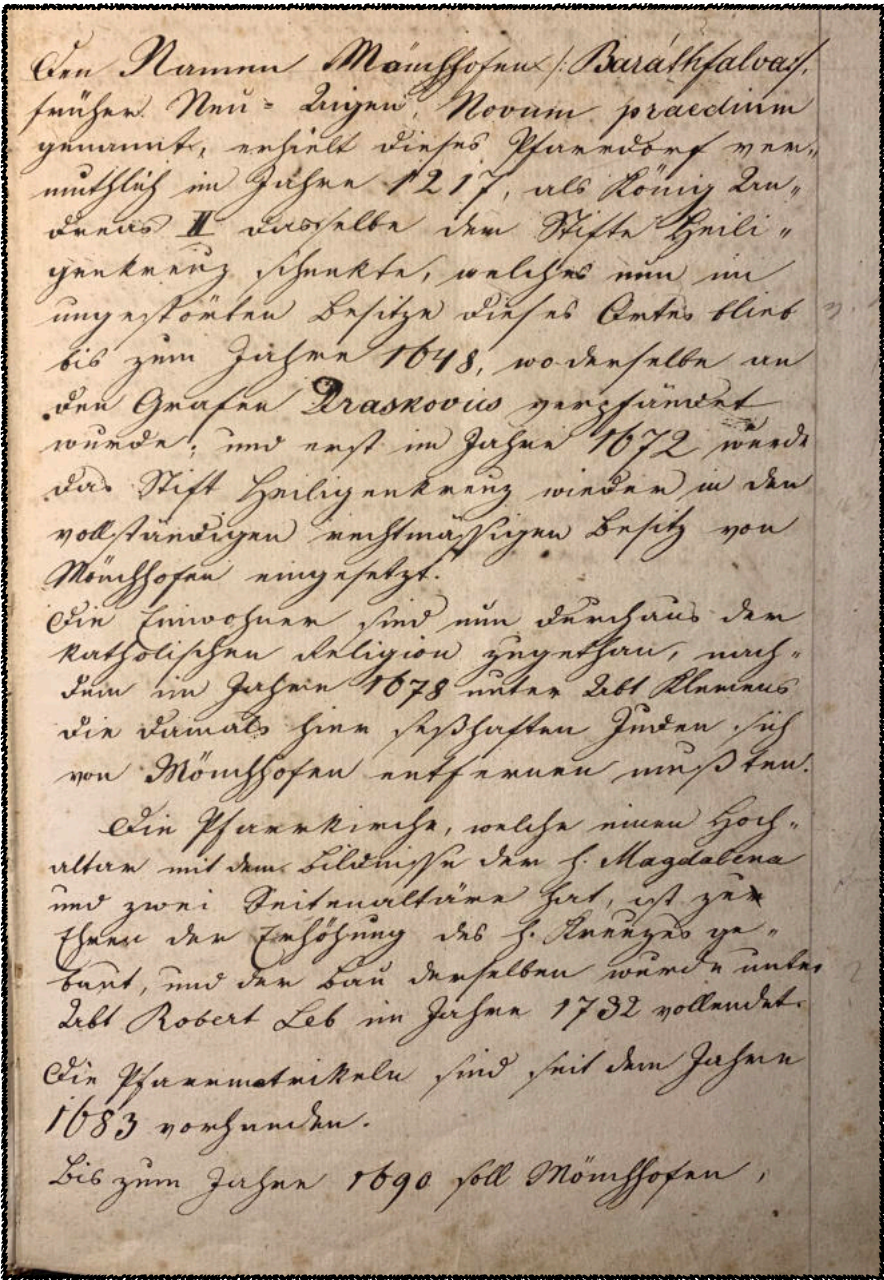 Den Namen Mönchhofen /: Baráthfalva :/,
früher Neu-Aigen, Novum praedium
genannt, erhielt dieses Pfarrdorf ver„
muthlich im Jahre 1217, als König An„
dreas II dasselbe dem Stifte Heili„
genkreuz schenkte, welches nun im
ungestörten Besitze dieses Ortes blieb
bis zum Jahre 1648, wo derselbe an
den Grafen Draskovics verpfändet
wurde; und erst im Jahre 1672 wurde
das Stift Heiligenkreuz wieder in den
vollständigen rechtmässigen Besitz von
Mönchhofen eingesetzt.
Die Einwohner sind nun durchaus der
katholischen Religion zugethan, nach„
dem im Jahre 1678 unter Abt Klemens
die damals hier seßhaften Juden sich
von Mönchhofen entfernen mußten.
Die Pfarrkirche, welche einen Hoch„
altar mit dem Bildnisse der h. Magdalena
und zwei Seitenaltäre hat, ist zur
Ehren der Erhöhung des h. Kreuzes ge„
baut, und der Bau derselben wurde unter
Abt Robert Leb im Jahre 1732 vollendet.
Die Pfarrmatrikeln sind seit dem Jahre
1683 vorhanden.
Bis zum Jahre 1690 soll Mönchhofen,